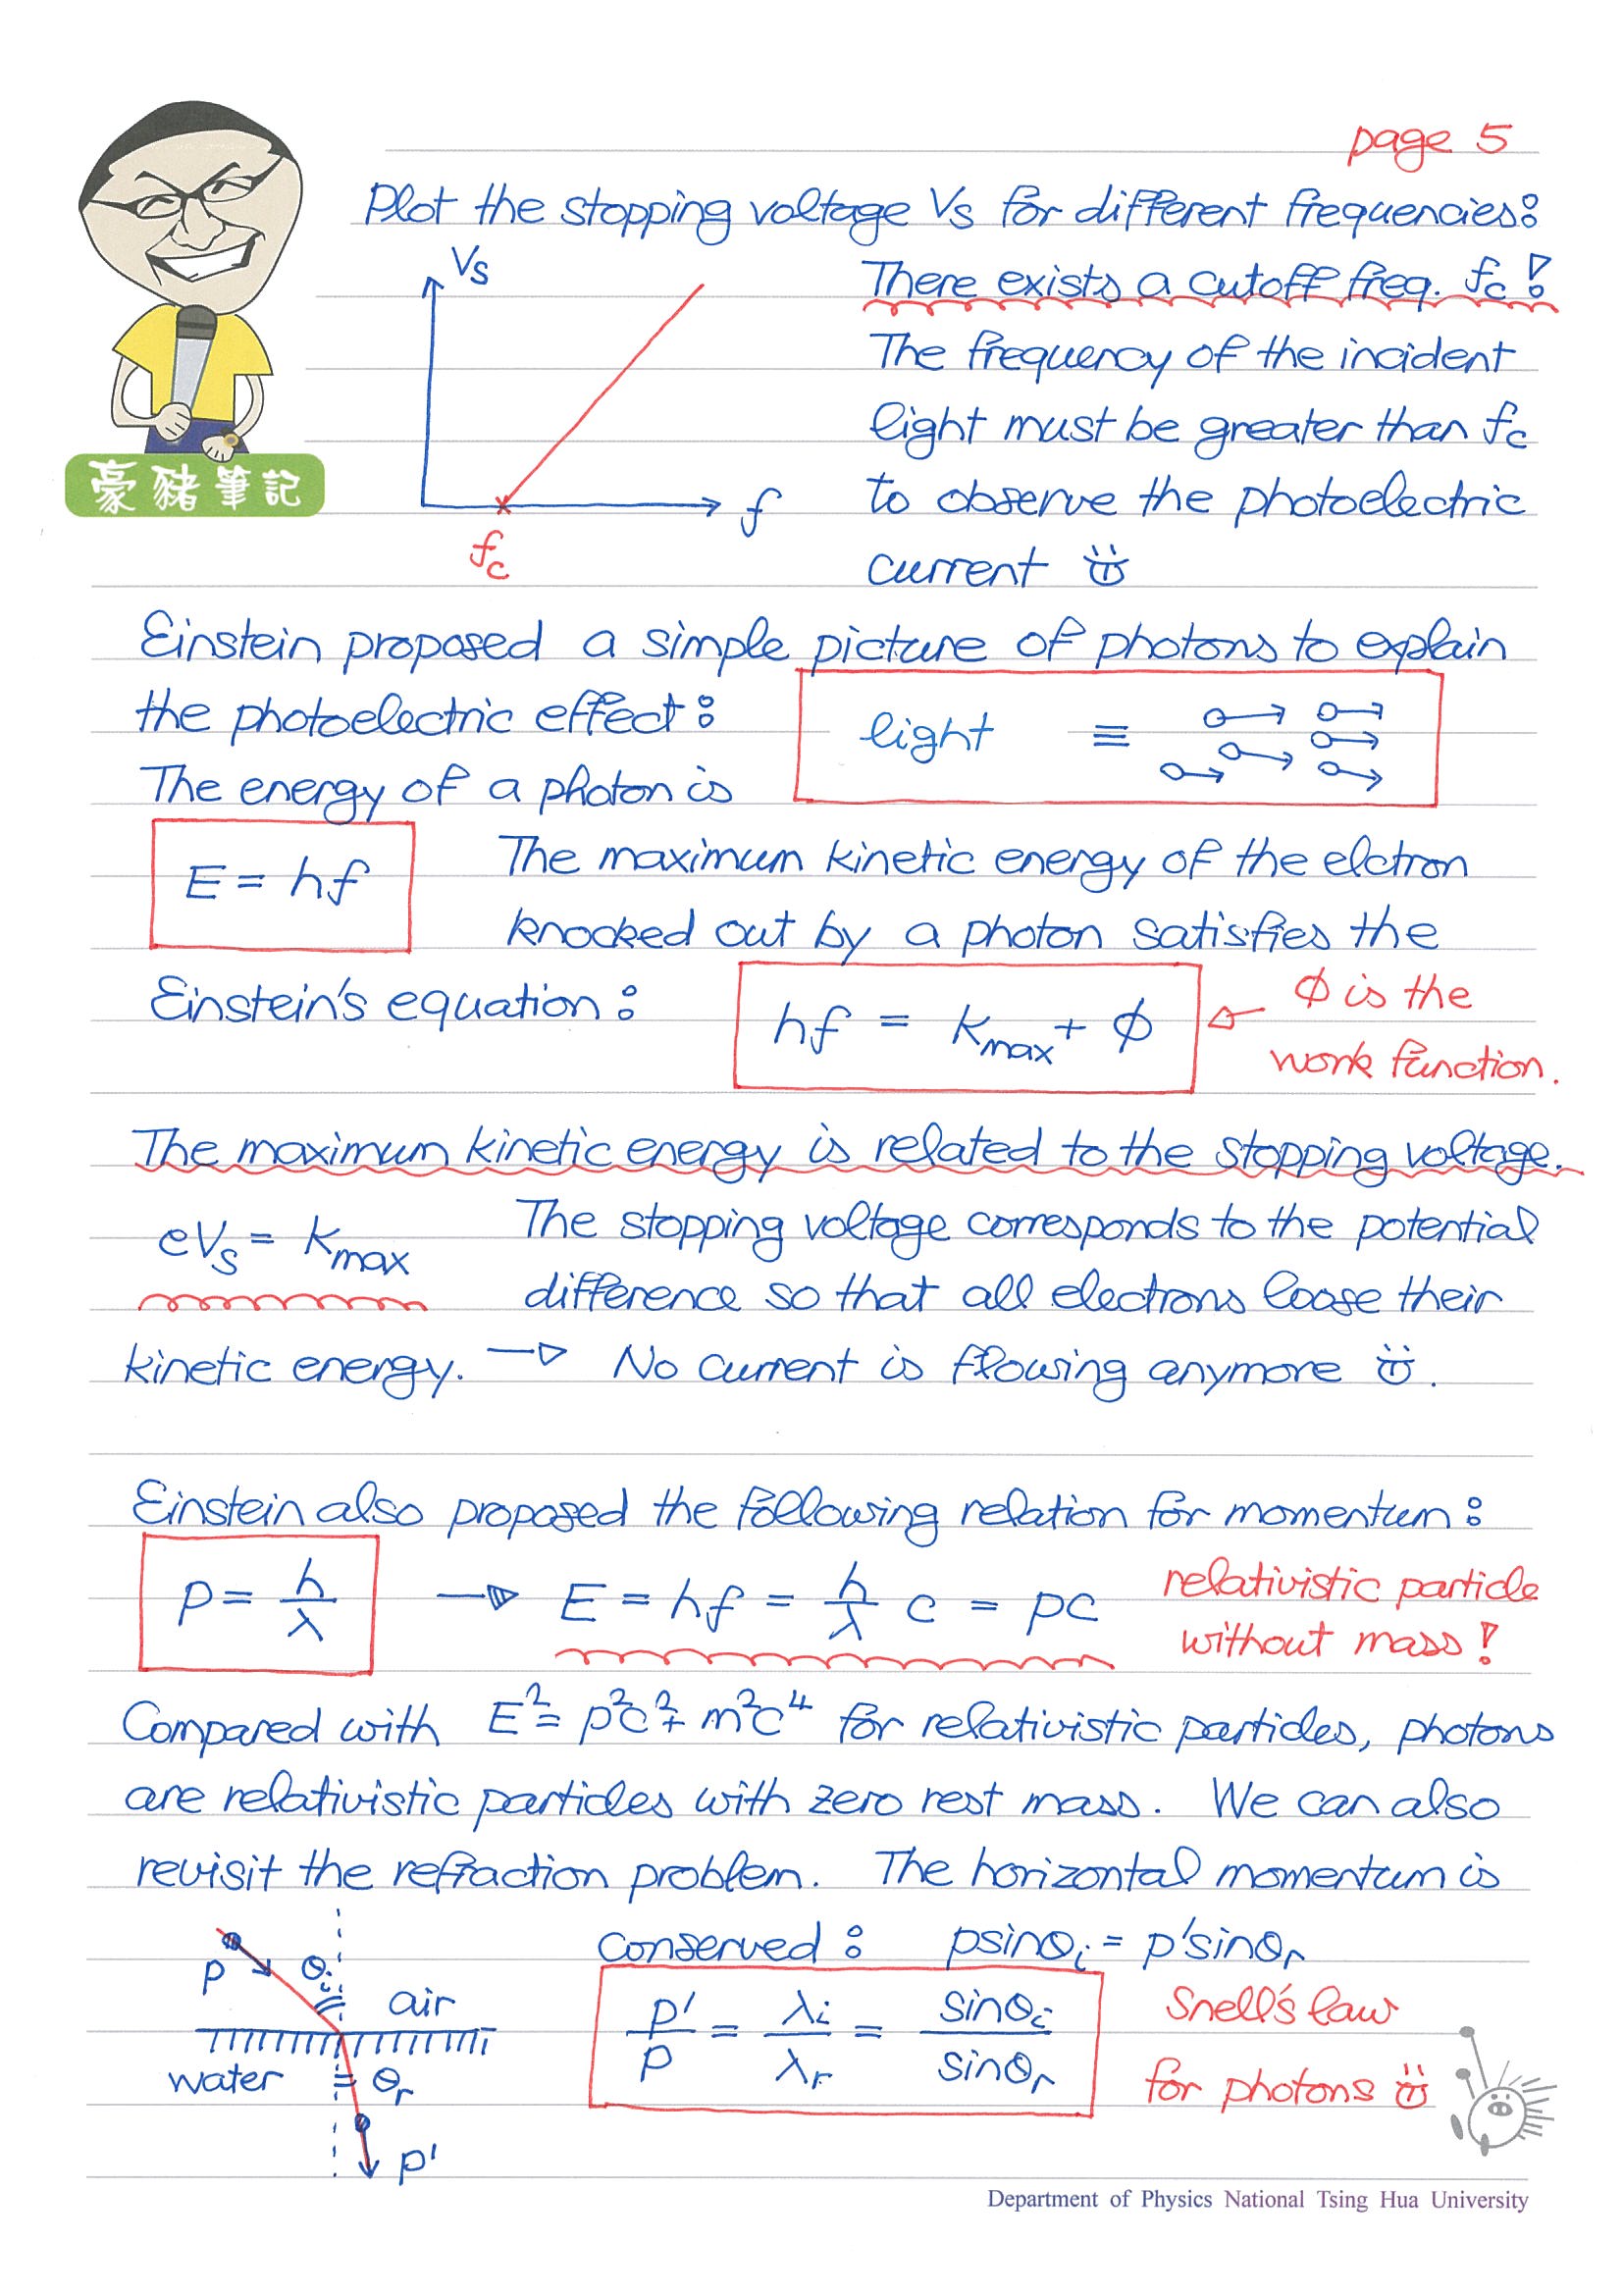 page 5
Plot the stopping voltage Vs for different frequencies:
Vs
There exists a cutoff freq. fc!
The frequency of the incident
light must be greater than fc
to observe the photoelectric
current
f
fc
豪豬筆記
Einstein proposed a simple picture of photons to explain
the photoelectric effect:
light ≡
The energy of a photon is
E = hf
The maximum kinetic energy of the elctron
knocked out by a photon satisfies the
Einstein's equation:
hf = Kmax + φ
φ is the
work function.
The maximum kinetic energy is related to the stopping voltage.
eVs = Kmax
The stopping voltage corresponds to the potential
difference so that all electrons loose their
kinetic energy. → No current is flowing anymore.
Einstein also proposed the following relation for momentum:
P = h/λ → E = hf = h/λ c = pc
relativistic particle
without mass!
Compared with E² = p²c² + m²c⁴ for relativistic particles, photons
are relativistic particles with zero rest mass. We can also
revisit the refraction problem. The horizontal momentum is
conserved: psinθi = p'sinθr
P
θi
air
water
θr
p'
p'/p = λi/λr = sinθi/sinθr
Snell's law
for photons
Department of Physics National Tsing Hua University